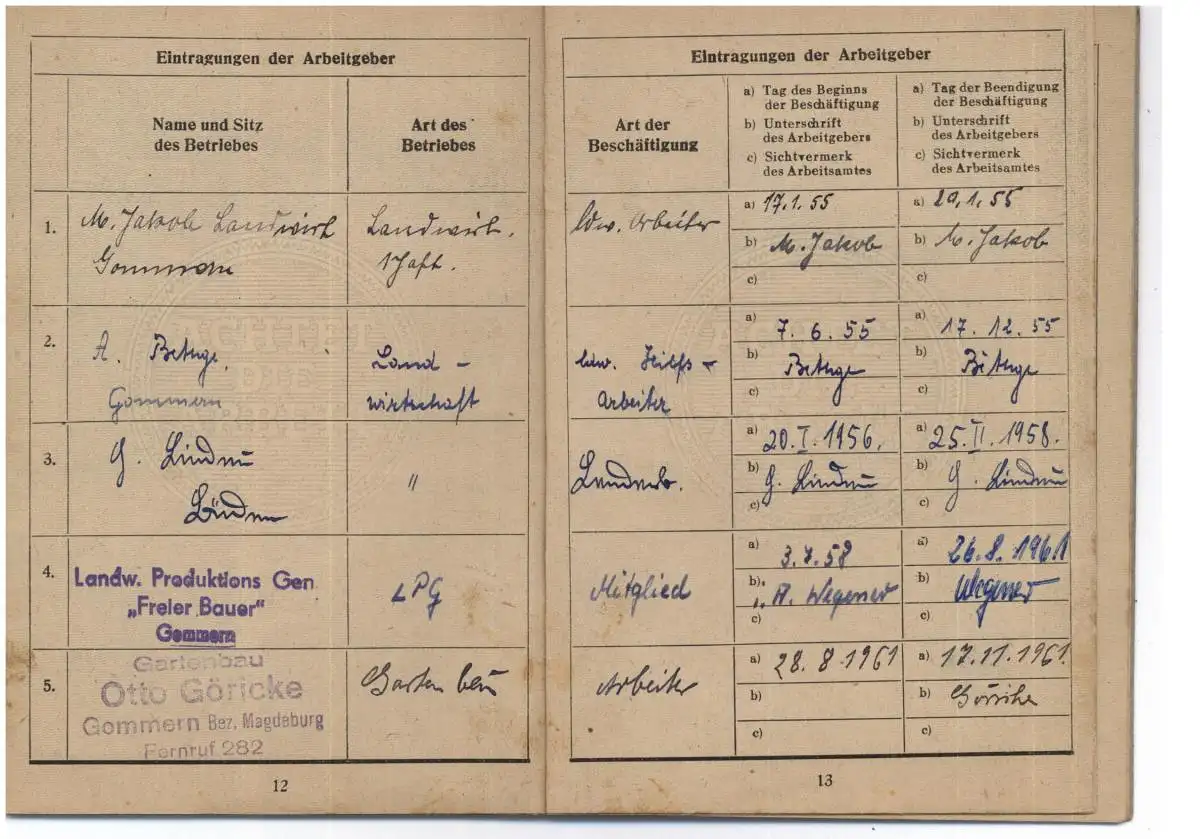 Eintragungen der Arbeitgeber
Name und Sitz
des Betriebes
Art des
Betriebes
1.
M. Jakob Landwirt
Gommern
Landwirt.
schaft.
2.
A. Betuge,
Gommern
Land -
wirtschaft
3.
G. Lindau
"
4.
Landw. Produktions Gen.
„Freier Bauer"
Gommern
LPG
5.
Gartenbau
Otto Göricke
Gommern Bez. Magdeburg
Fernruf 282
Gartenbau
12
Eintragungen der Arbeitgeber
Art der
Beschäftigung
a) Tag des Beginns
der Beschäftigung
b) Unterschrift
des Arbeitgebers
c) Sichtvermerk
des Arbeitsamtes
a) Tag der Beendigung
der Beschäftigung
b) Unterschrift
des Arbeitgebers
c) Sichtvermerk
des Arbeitsamtes
ldw. Arbeiter
a) 17.1.55
b) M. Jakob
c)
a) 20.1.55
b) M. Jakob
c)
ldw. Hilfs-
Arbeiter
a) 7. 6. 55
b) Betuge
c)
a) 17. 12. 55
b) Betuge
c)
Landarb.
a) 20. I. 1956.
b) G. Lindau
c)
a) 25. II. 1958.
b) G. Lindau
c)
Mitglied
a) 3.7.58
b) A. Wegener
c)
a) 26.8.1961
b) Wegener
c)
Arbeiter
a) 28.8.1961
b)
c)
a) 17.11.1961.
b) Göricke
c)
13